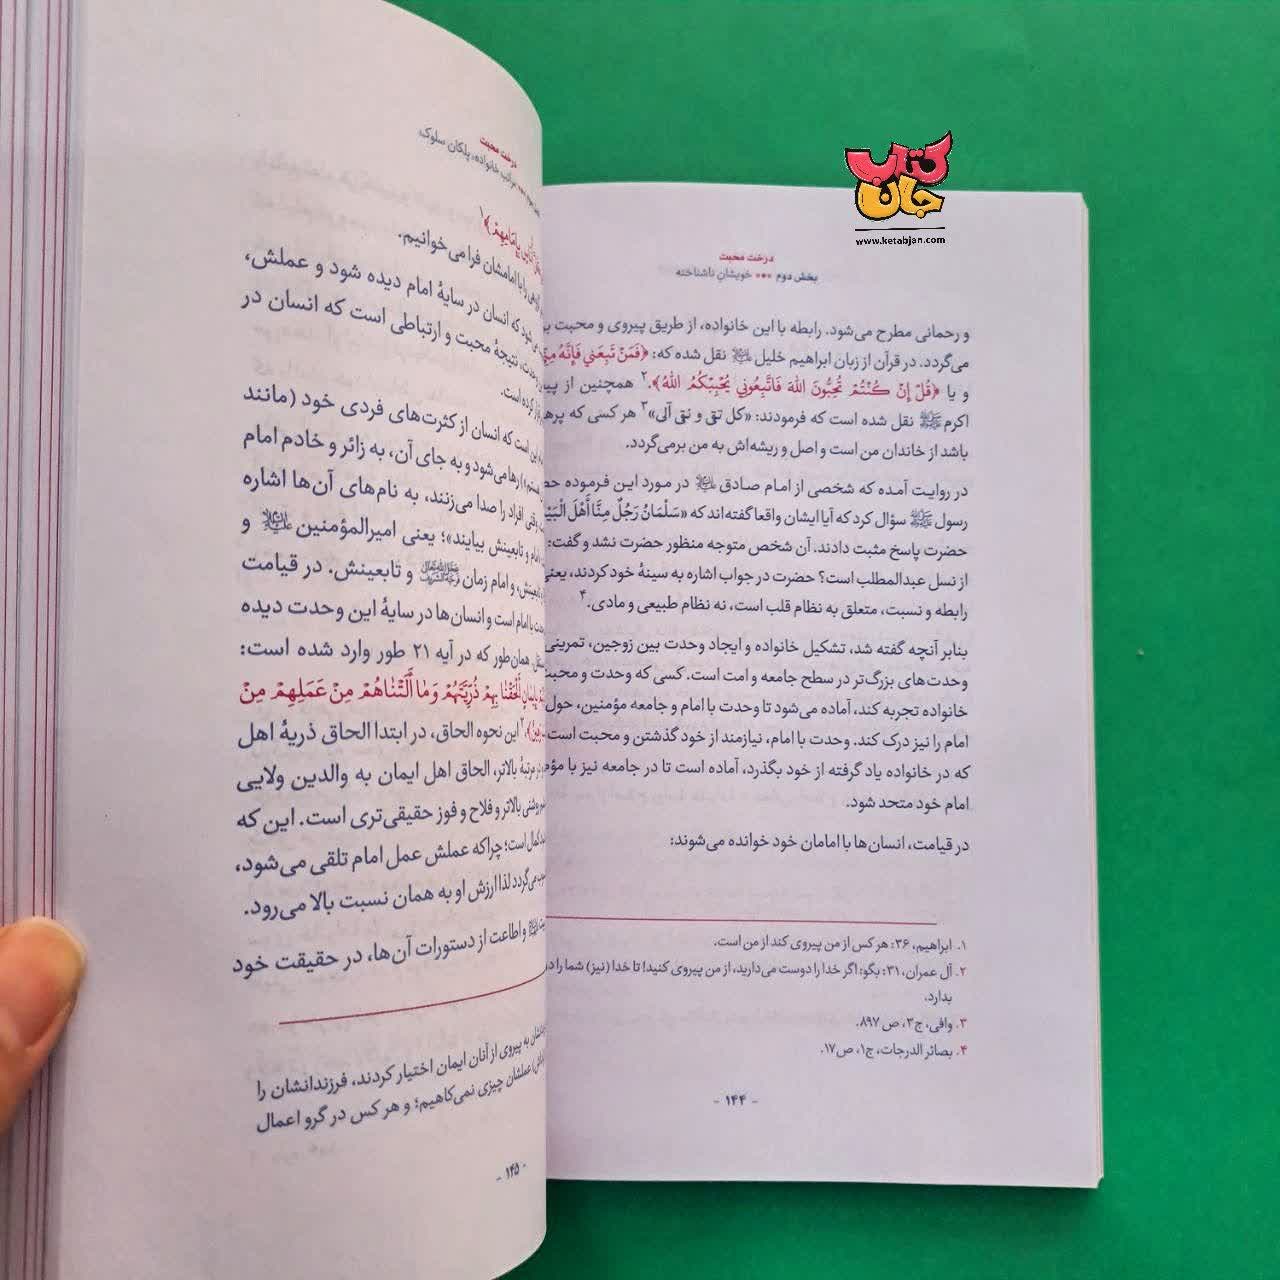 کتاب
جان
www.ketabjan.com
درخت محبت
بخش دوم ••• خویشان ناشناخته
و رحمانی مطرح می‌شود. رابطه با این خانواده، از طریق پیروی و محبت
می‌گردد. در قرآن از زبان ابراهیم خلیل نقل شده که: ﴿فَمَنْ تَبِعَني فَإِنَّهُ
و یا ﴿قُلْ إِنْ كُنْتُمْ تُحِبُّونَ اللّهَ فَاتَّبِعُوني يُحْبِبْكُمُ اللّهُ﴾.۲ همچنین از
اکرم ﷺ نقل شده است که فرمودند: «کل تقی و نقی آلی»۳ هر کسی که
باشد از خاندان من است و اصل و ریشه‌اش به من برمی‌گردد.
در روایت آمده که شخصی از امام صادق در مورد این فرموده
رسول ﷺ سؤال کرد که آیا ایشان واقعا گفته‌اند که «سَلْمَانُ رَجُلٌ مِنَّا أَهْلَ
حضرت پاسخ مثبت دادند. آن شخص متوجه منظور حضرت نشد و گفت:
از نسل عبدالمطلب است؟ حضرت در جواب اشاره به سینهٔ خود کردند، یعنی
رابطه و نسبت، متعلق به نظام قلب است، نه نظام طبیعی و مادی.۴
بنابر آنچه گفته شد، تشکیل خانواده و ایجاد وحدت بین زوجین، تمرینی
وحدت‌های بزرگ‌تر در سطح جامعه و امت است. کسی که وحدت و محبت
خانواده تجربه کند، آماده می‌شود تا وحدت با امام و جامعه مؤمنین، حول
امام را نیز درک کند. وحدت با امام، نیازمند از خود گذشتن و محبت است.
که در خانواده یاد گرفته از خود بگذرد، آماده است تا در جامعه نیز با
امام خود متحد شود.
در قیامت، انسان‌ها با امامان خود خوانده می‌شوند:
۱. ابراهیم، ۳۶: هر کس از من پیروی کند از من است.
۲. آل عمران، ۳۱: بگو: اگر خدا را دوست می‌دارید، از من پیروی کنید! تا خدا (نیز) شما را
بدارد.
۳. وافی، ج۳، ص ۸۹۷.
۴. بصائر الدرجات، ج۱، ص۱۷.
- ۱۴۴ -
درخت محبت
مراتب خانواده، پلکان سلوک
بِإِمَامِهِمْ﴾۱
را با امامشان فرا می‌خوانیم.
که انسان در سایهٔ امام دیده شود و عملش،
نتیجهٔ محبت و ارتباطی است که انسان در
کرده است.
این است که انسان از کثرت‌های فردی خود (مانند
رها می‌شود و به جای آن، به زائر و خادم امام
وقتی افراد را صدا می‌زنند، به نام‌های آن‌ها اشاره
امام و تابعینش بیایند»؛ یعنی امیرالمؤمنین و
و امام زمان و تابعینش. در قیامت
با امام است و انسان‌ها در سایهٔ این وحدت دیده
همان‌طور که در آیه ۲۱ طور وارد شده است:
بِإِيمَانٍ أَلْحَقْنَا بِهِمْ ذُرِّيَّتَهُمْ وَمَا أَلَتْنَاهُمْ مِنْ عَمَلِهِمْ مِنْ
این نحوه الحاق، در ابتدا الحاق ذریهٔ اهل
مرتبهٔ بالاتر، الحاق اهل ایمان به والدین ولایی
روشنی بالاتر و فلاح و فوز حقیقی‌تری است. این که
کمال است؛ چراکه عملش عمل امام تلقی می‌شود،
می‌گردد لذا ارزش او به همان نسبت بالا می‌رود.
و اطاعت از دستورات آن‌ها، در حقیقت خود
به پیروی از آنان ایمان اختیار کردند، فرزندانشان را
عملشان چیزی نمی‌کاهیم؛ و هر کس در گرو اعمال
- ۱۴۵ -